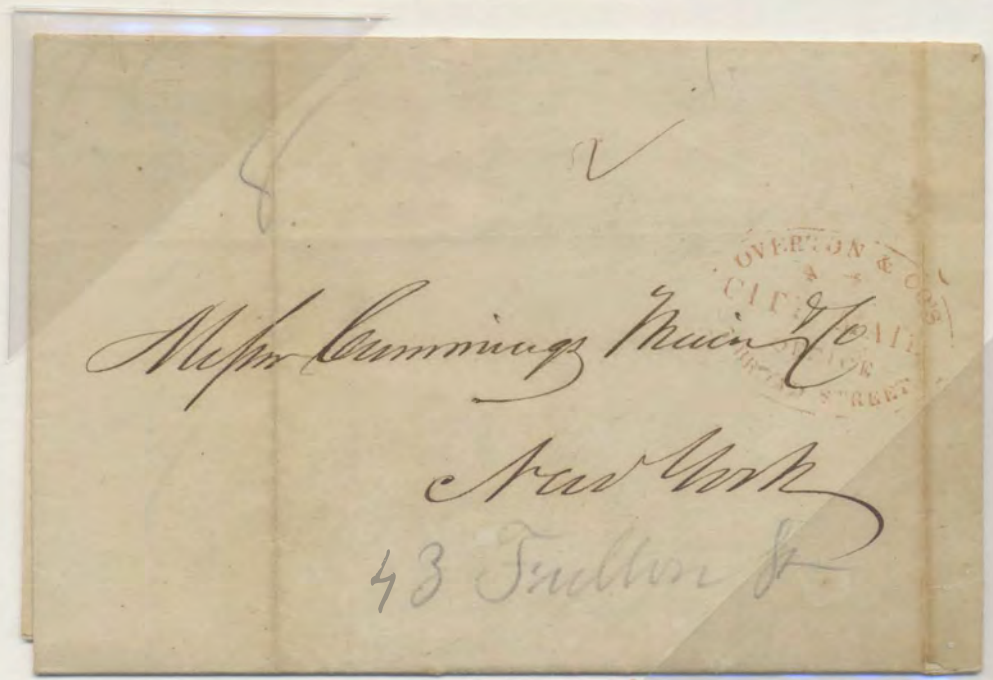 OVERTON & CO'S
CITY MAIL
STREET
Messrs Cummings Main & Co
New York
43 Fullon St